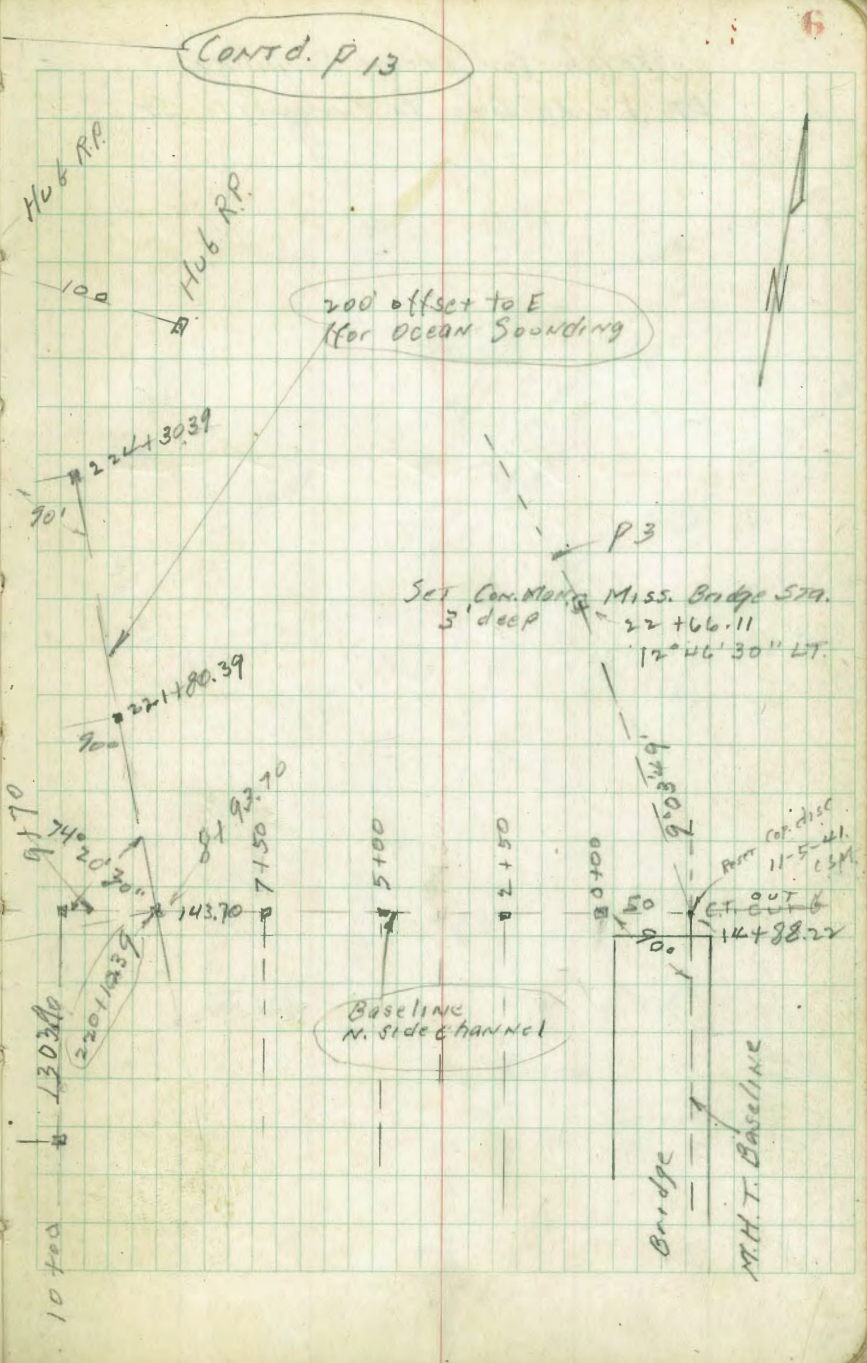 6
Contd. P 13
Hub R.P.
Hub R.P.
100
200' offset to E
for Ocean Sounding
224+30.39
90'
P 3
Set Con. Mon.
3' deep
Miss. Bridge Sta.
22+66.11
12°46'30" LT.
221+80.39
900
9°03'49'
9+70
74°
20'
30"
8+93.70
7+50
5+00
2+50
0+00
50
Reset Cor. disc
11-5-41.
143.70
OUT
14+88.22
90°
Baseline
N. side channel
10+00
Bridge
M.H.T. Baseline